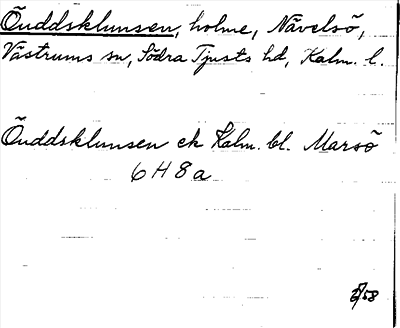 Önddsklunsen, holme, Nävelsö,
Västrums sn, Södra Tjusts hd, Kalm. l.
Önddsklunsen ek Kalm. bl. Marsö
6 H 8 a
58